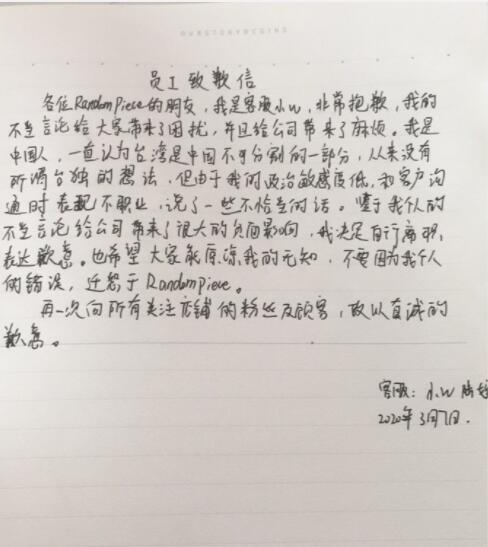 OURSTORYBEGINS
员工致歉信
各位RandomPiece的朋友，我是客服小w，非常抱歉，我的
不当言论给大家带来了困扰，并且给公司带来了麻烦。我是
中国人，一直认为台湾是中国不可分割的一部分，从来没有
所谓台独的想法，但由于我的政治敏感度低，和客户沟
通时表现不职业，说了一些不恰当的话。鉴于我个人的
不当言论给公司带来了很大的负面影响，我决定自行离职，
表达歉意。也希望大家能原谅我的无知，不要因为我个人
的错误，迁怒于RandomPiece。
再一次向所有关注店铺的粉丝及顾客，致以真诚的
歉意。
客服：小w
2020年3月7日.